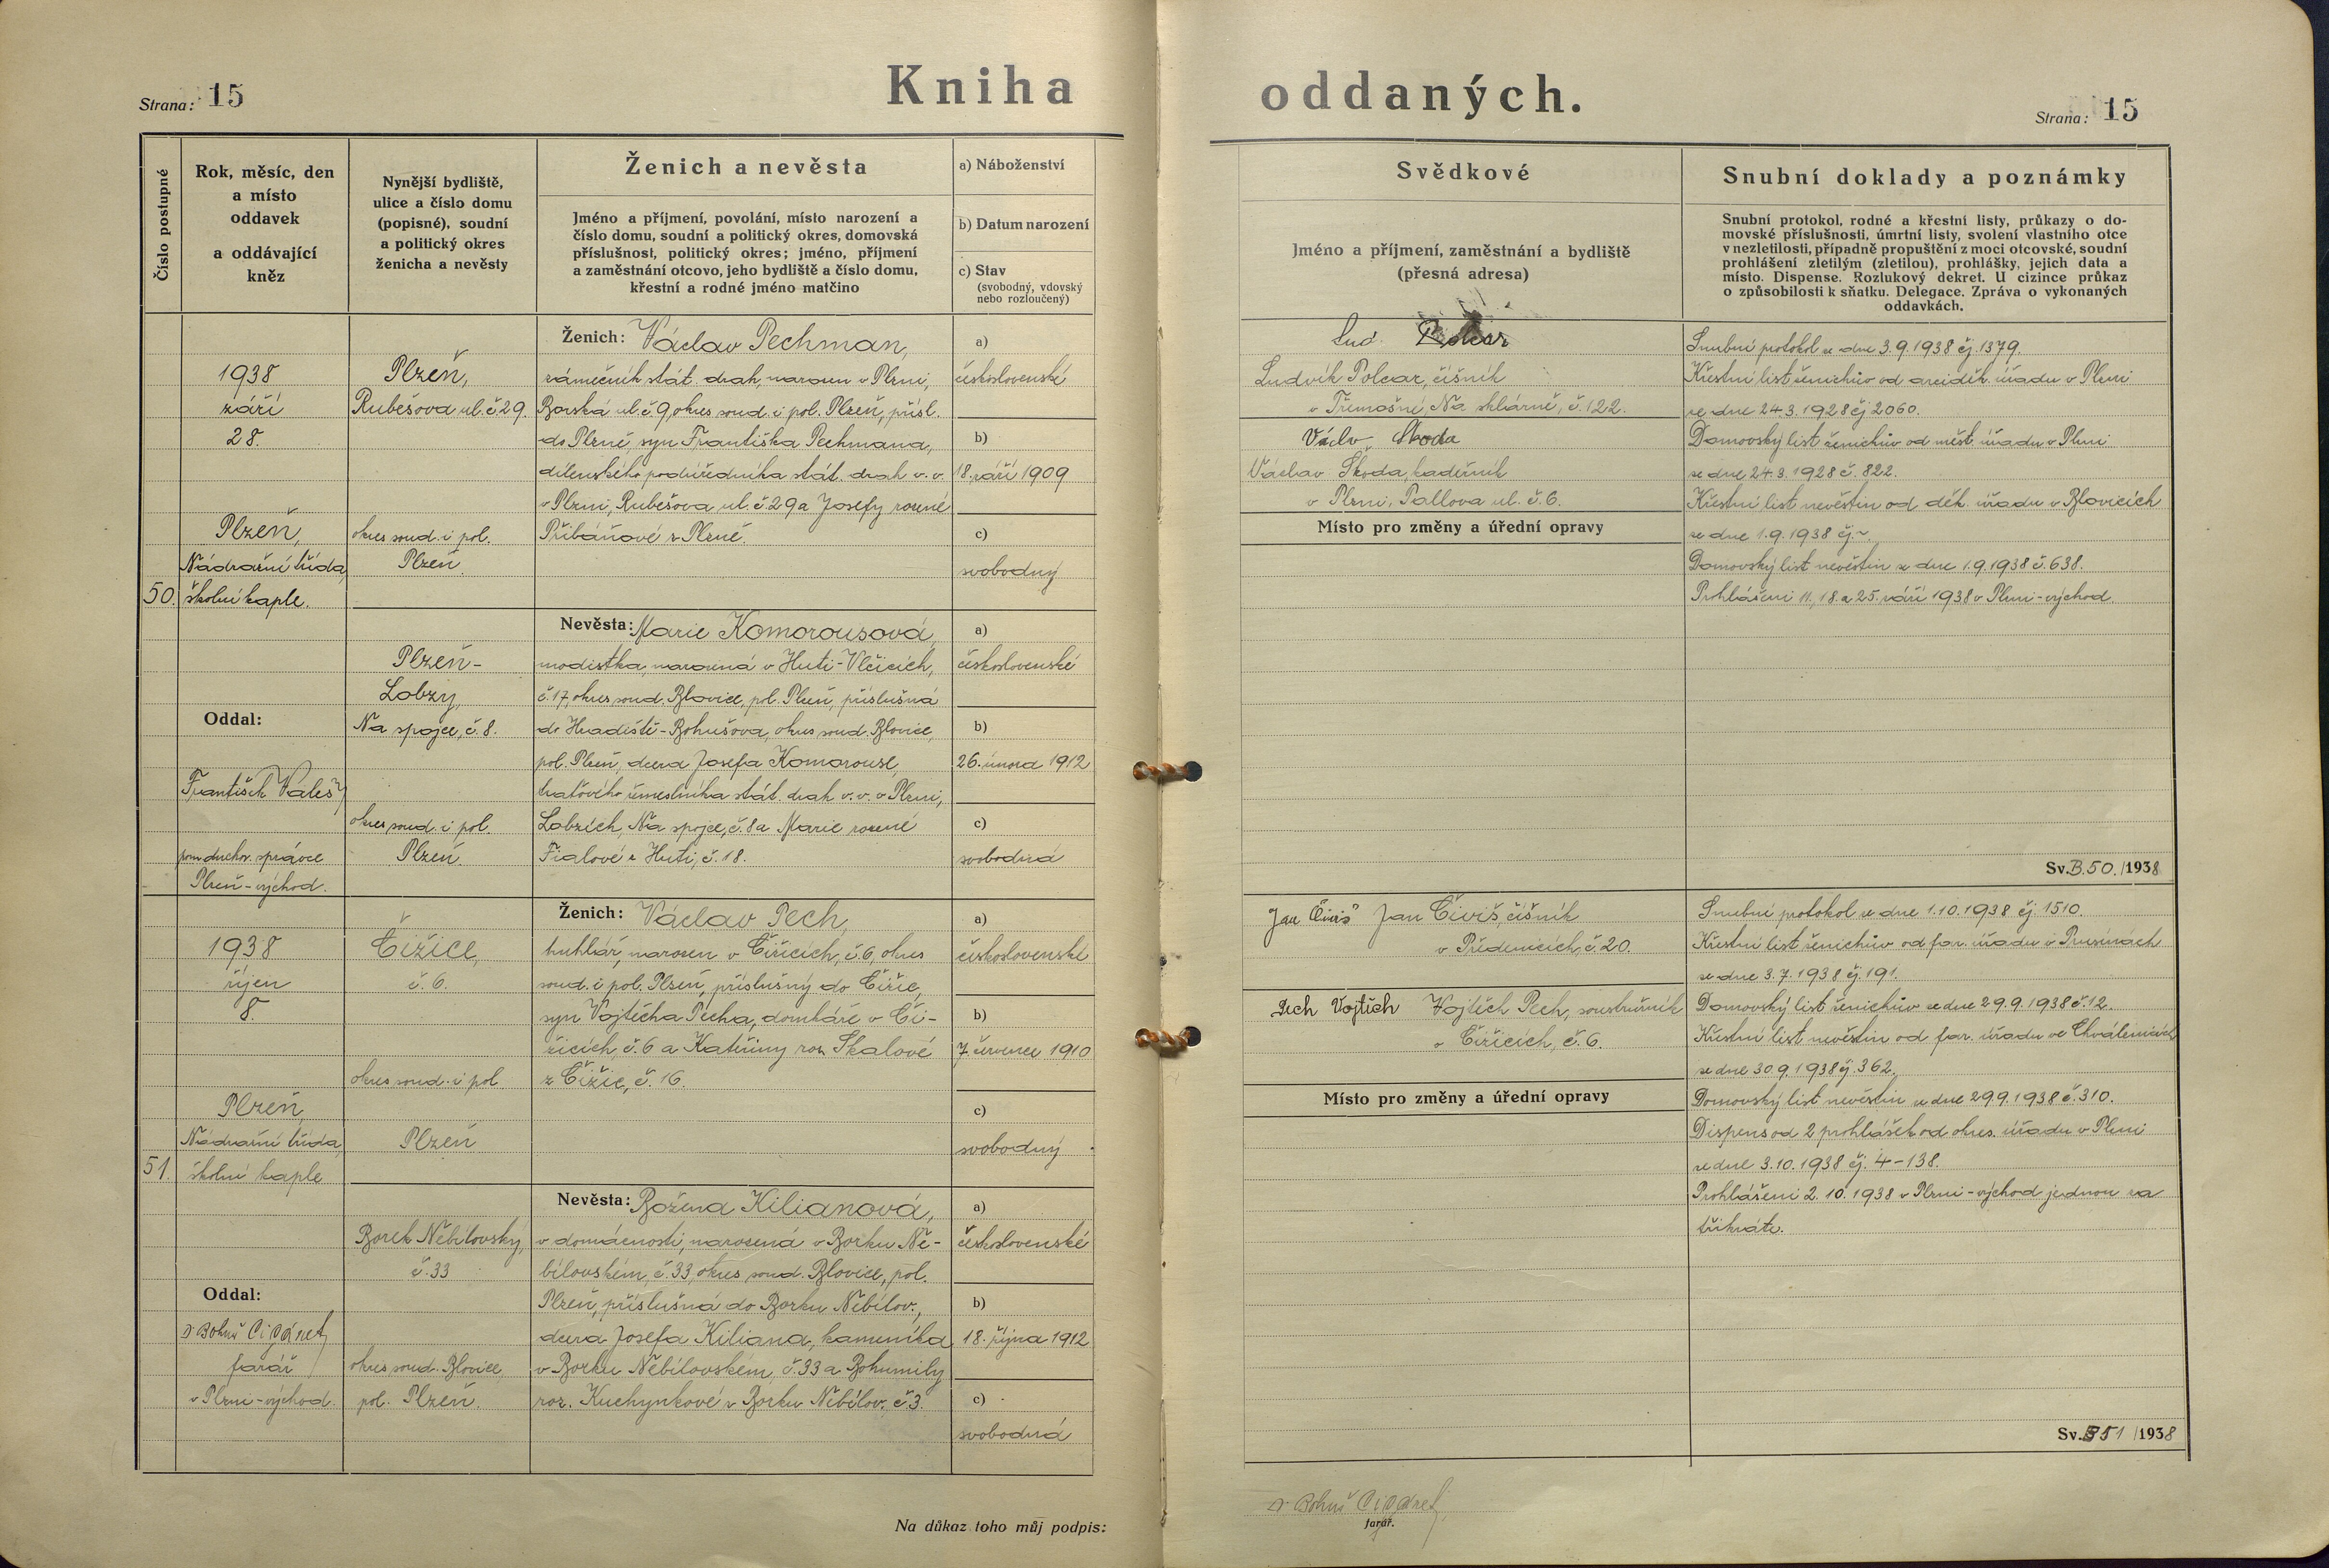 Strana: 15
Kniha oddaných.
Strana: 15
Číslo postupné
Rok, měsíc, den
a místo
oddavek
a oddávající
kněz
Nynější bydliště,
ulice a číslo domu
(popisné), soudní
a politický okres
ženicha a nevěsty
Ženich a nevěsta
Jméno a příjmení, povolání, místo narození a
číslo domu, soudní a politický okres, domovská
příslušnost, politický okres; jméno, příjmení
a zaměstnání otcovo, jeho bydliště a číslo domu,
křestní a rodné jméno matčino
a) Náboženství
b) Datum narození
c) Stav
(svobodný, vdovský
nebo rozloučený)
Svědkové
Jméno a příjmení, zaměstnání a bydliště
(přesná adresa)
Snubní doklady a poznámky
Snubní protokol, rodné a křestní listy, průkazy o do-
movské příslušnosti, úmrtní listy, svolení vlastního otce
v nezletilosti, případně propuštění z moci otcovské, soudní
prohlášení zletilým (zletilou), prohlášky, jejich data a
místo. Dispense. Rozlukový dekret. U cizince průkaz
o způsobilosti k sňatku. Delegace. Zpráva o vykonaných
oddavkách.
50.
1938
září
28.
Plzeň,
Nádražní třída,
školní kaple.
Oddal:
František Valeš
pom. duchov. správce
Plzeň-východ.
Plzeň,
Rubešova ul. č 29.
okres soud. i pol.
Plzeň.
Plzeň-
Lobzy,
Na spojce, č. 8.
okres soud. i pol.
Plzeň.
Ženich: Václav Pechman,
zámečník stát. drah, narozen v Plzni,
Borská ul. č 9, okres soud. i pol. Plzeň, přísl.
do Plzně, syn Františka Pechmana,
dílenského podúředníka stát. drah v. v.
v Plzni, Rubešova ul. č 29 a Josefy rozené
Přibáňové z Plzně.
a)
československé
b)
18. září 1909
c)
svobodný
Nevěsta: Marie Komorousová,
modistka, narozená v Huti-Vlčicích,
č. 17, okres soud. Blovice, pol. Plzeň, příslušná
do Hradiště-Bohušova, okres soud. Blovice,
pol. Plzeň, dcera Josefa Komorouse,
traťového řemeslníka stát. drah v. v. v Plzni,
Lobzích, Na spojce, č. 8 a Marie rozené
Fialové z Huti, č. 18.
a)
československé
b)
26. února 1912
c)
svobodná
Lud. Polcar
Ludvík Polcar, číšník
v Třemošné, Na sklárně, č. 122.
Václav Škoda
Václav Škoda, kadeřník
v Plzni, Pallova ul. č. 6.
Místo pro změny a úřední opravy
Snubní protokol ze dne 3. 9. 1938 čj. 1379.
Křestní list ženichův od arciděk. úřadu v Plzni
ze dne 24. 3. 1928 čj 2060.
Domovský list ženichův od měst. úřadu v Plzni
ze dne 24. 3. 1928 č. 822.
Křestní list nevěstin od děk. úřadu v Blovicích
ze dne 1. 9. 1938 čj. ~.
Domovský list nevěstin ze dne 1. 9. 1938 č. 638.
Prohlášeni 11., 18. a 25. září 1938 v Plzni-východ.
Sv. B. 50. /1938
51.
1938
říjen
8.
Plzeň,
Nádražní třída,
školní kaple
Oddal:
Dr Bohuš Cigánek
farář
v Plzni-východ.
Čižice,
č. 6.
okres soud. i pol
Plzeň
Borek Nebílovský,
č. 33
okres soud. Blovice
pol. Plzeň.
Ženich: Václav Pech,
truhlář, narozen v Čižicích, č. 6, okres
soud. i pol. Plzeň, příslušný do Čižic,
syn Vojtěcha Pecha, domkáře v Či-
žicích, č. 6 a Kateřiny roz. Skalové
z Čižic, č. 16.
a)
československé
b)
7. července 1910
c)
svobodný
Nevěsta: Božena Kilianová,
v domácnosti, narozená v Borku Ne-
bílovském, č. 33, okres soud. Blovice, pol.
Plzeň, příslušná do Borku Nebílov.,
dcera Josefa Kiliana, kameníka
v Borku Nebílovském, č. 33 a Bohumily
roz. Kuchynkové v Borku Nebílov. č 3.
a)
československé
b)
18. října 1912
c)
svobodná
Jan Čiviš Jan Čiviš, číšník
v Předenicích, č 20.
Pech Vojtěch Vojtěch Pech, soustružník
v Čižicích, č. 6.
Místo pro změny a úřední opravy
Snubní protokol ze dne 1. 10. 1938 čj. 1510.
Křestní list ženichův od far. úřadu v Prusinách
ze dne 3. 7. 1938 čj. 191.
Domovský list ženichův ze dne 29. 9. 1938 č. 12.
Křestní list nevěstin od far. úřadu ve Chválenicích
ze dne 30 9. 1938 čj. 362.
Domovský list nevěstin ze dne 29. 9. 1938 č. 310.
Dispens od 2 prohlášek od okres. úřadu v Plzni
ze dne 3. 10. 1938 čj. 4-138.
Prohlášeni 2. 10. 1938 v Plzni-východ jednou za
třikráte.
Sv. B 51 /1938
Na důkaz toho můj podpis:
Dr Bohuš Cigánek
farář.